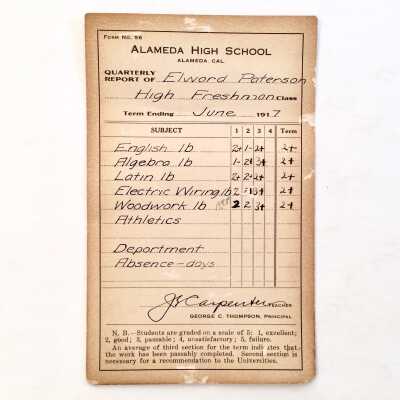 FORM NO. 56
ALAMEDA HIGH SCHOOL
ALAMEDA, CAL.
QUARTERLY
REPORT OF Elword Paterson
High Freshman Class
Term Ending June 1917
SUBJECT 1 2 3 4 Term
English 1b 2+ 1- 2+ 2+
Algebra 1b 1- 2+ 3+ 2+
Latin 1b 2+ 2+ 2+ 2+
Electric Wiring 1b 2 3+ 2+
Woodwork 1b 2 2 3+ 2+
Athletics
Department
Absence-days
J E Carpenter TEACHER
GEORGE C. THOMPSON, PRINCIPAL
N. B.—Students are graded on a scale of 5: 1, excellent;
2, good; 3, passable; 4, unsatisfactory; 5, failure.
An average of third section for the term indicates that
the work has been passably completed. Second section is
necessary for a recommendation to the Universities.